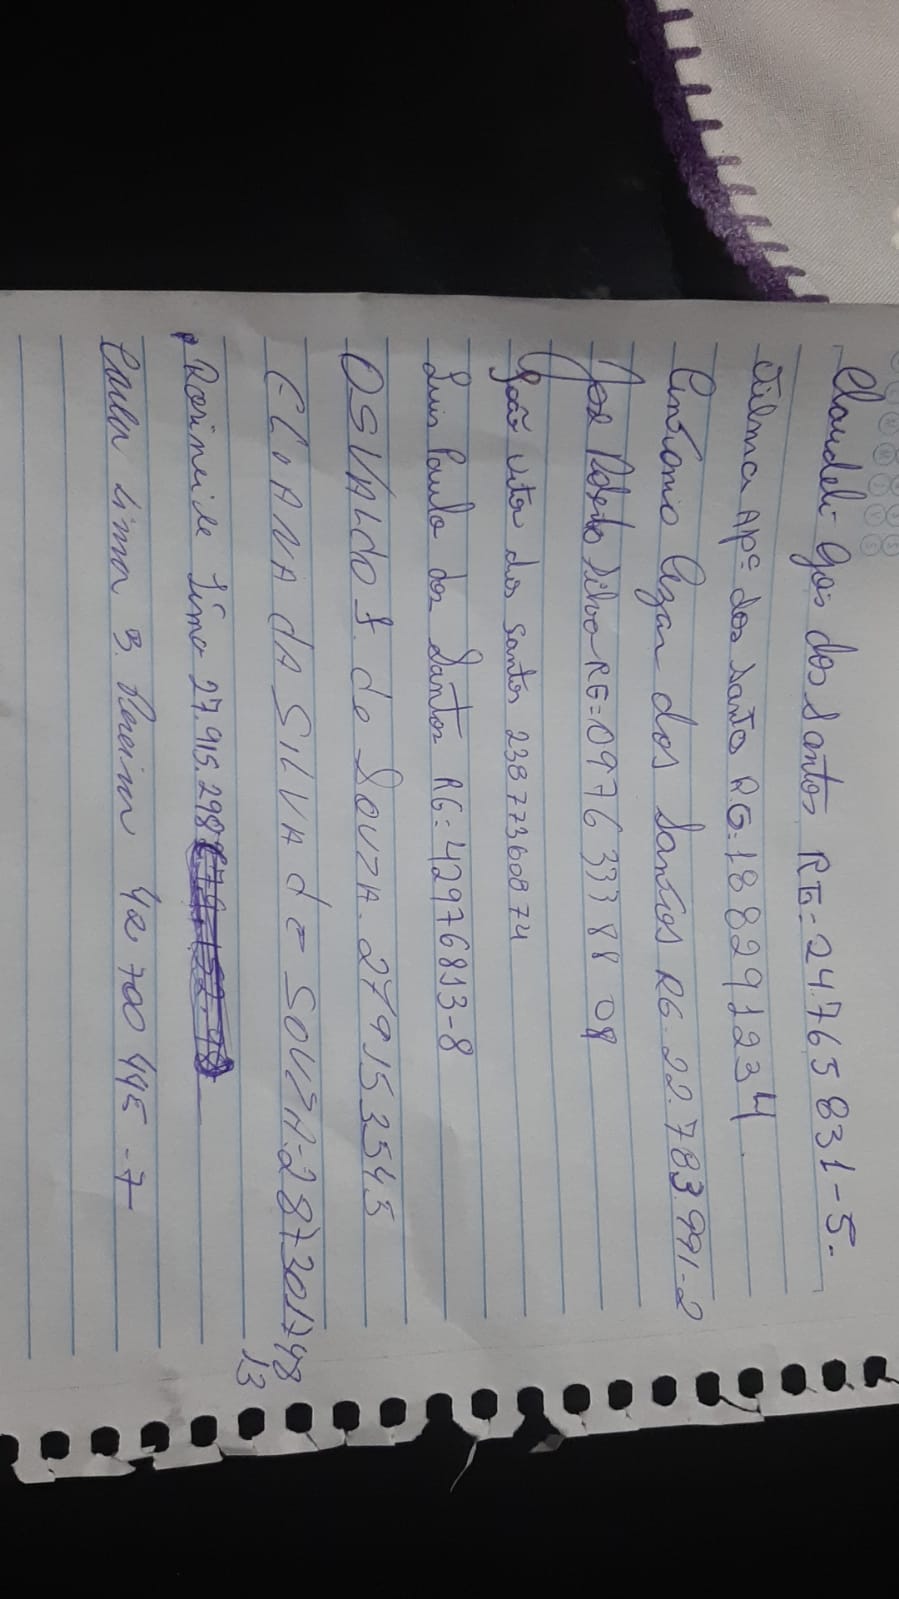 Claudeli Gois dos Santos RG=24.765831-5.
Silma APª dos Santos RG=188291234.
Antonio Cezar dos Santos RG.22.783.991-2
José Roberto Silva RG=0976333808
João vita dos Santos 23877360874
Luis Paulo dos Santos RG=42976813-8
OSVALdO S. de Souza. 279153545
ELIANA dA SILVA dE SOUZA-2873017 48
13
Rosineide Lima 27.915.298
Lima B. Pereira 42 700 445-7